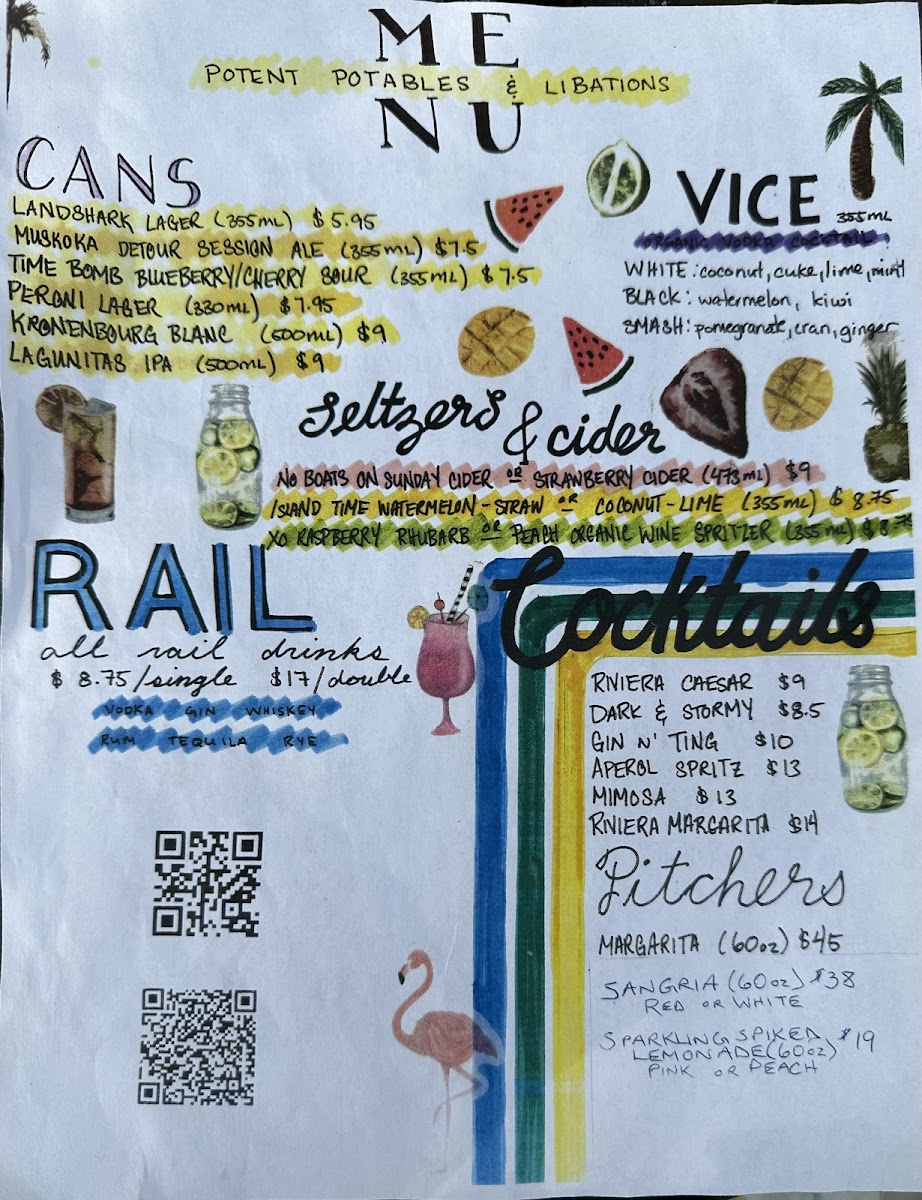 ME
POTENT POTABLES & LIBATIONS
NU
CANS
LANDSHARK LAGER (355mL) $5.95
MUSKOKA DETOUR SESSION ALE (355mL) $7.5
TIME BOMB BLUEBERRY/CHERRY SOUR (355mL) $7.5
PERONI LAGER (330mL) $7.95
KRONENBOURG BLANC (500mL) $9
LAGUNITAS IPA (500mL) $9
VICE 355mL
ORGANIC VODKA COCKTAIL:
WHITE: coconut, cuke, lime, mint
BLACK: watermelon, kiwi
SMASH: pomegranate, cran, ginger
Seltzers & cider
NO BOATS ON SUNDAY CIDER OR STRAWBERRY CIDER (473mL) $9
ISLAND TIME WATERMELON-STRAW OR COCONUT-LIME (355mL) $8.75
XO RASPBERRY RHUBARB OR PEACH ORGANIC WINE SPRITZER (355mL) $8.75
RAIL
all rail drinks
$8.75/single $17/double
VODKA GIN WHISKEY
RUM TEQUILA RYE
Cocktails
RIVIERA CAESAR $9
DARK & STORMY $8.5
GIN N' TING $10
APEROL SPRITZ $13
MIMOSA $13
RIVIERA MARGARITA $14
Pitchers
MARGARITA (60oz) $45
SANGRIA (60oz) $38
RED OR WHITE
SPARKLING SPIKED $19
LEMONADE (60oz)
PINK OR PEACH